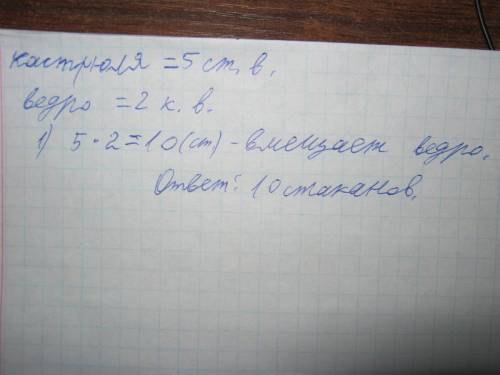 кастрюля = 5 ст. в.
ведро = 2 к. в.
1) 5 · 2 = 10 (ст) - вмещает ведро.
Ответ: 10 стаканов.